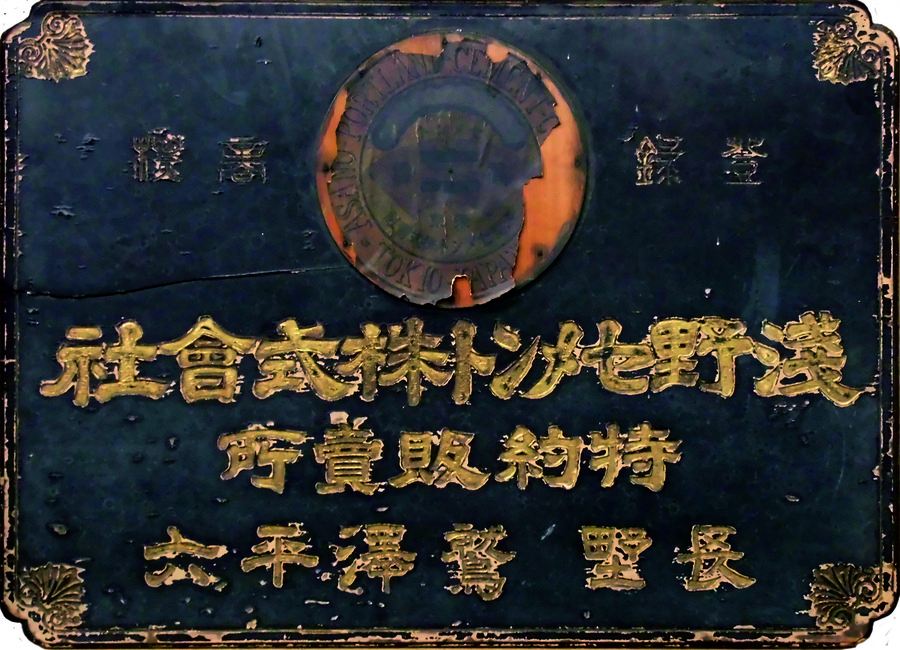 登錄 商標
ASANO PORTLAND CEMENT Co TOKIO JAPAN
淺野セメント株式會社
特約販賣所
長墅 鷲澤平六